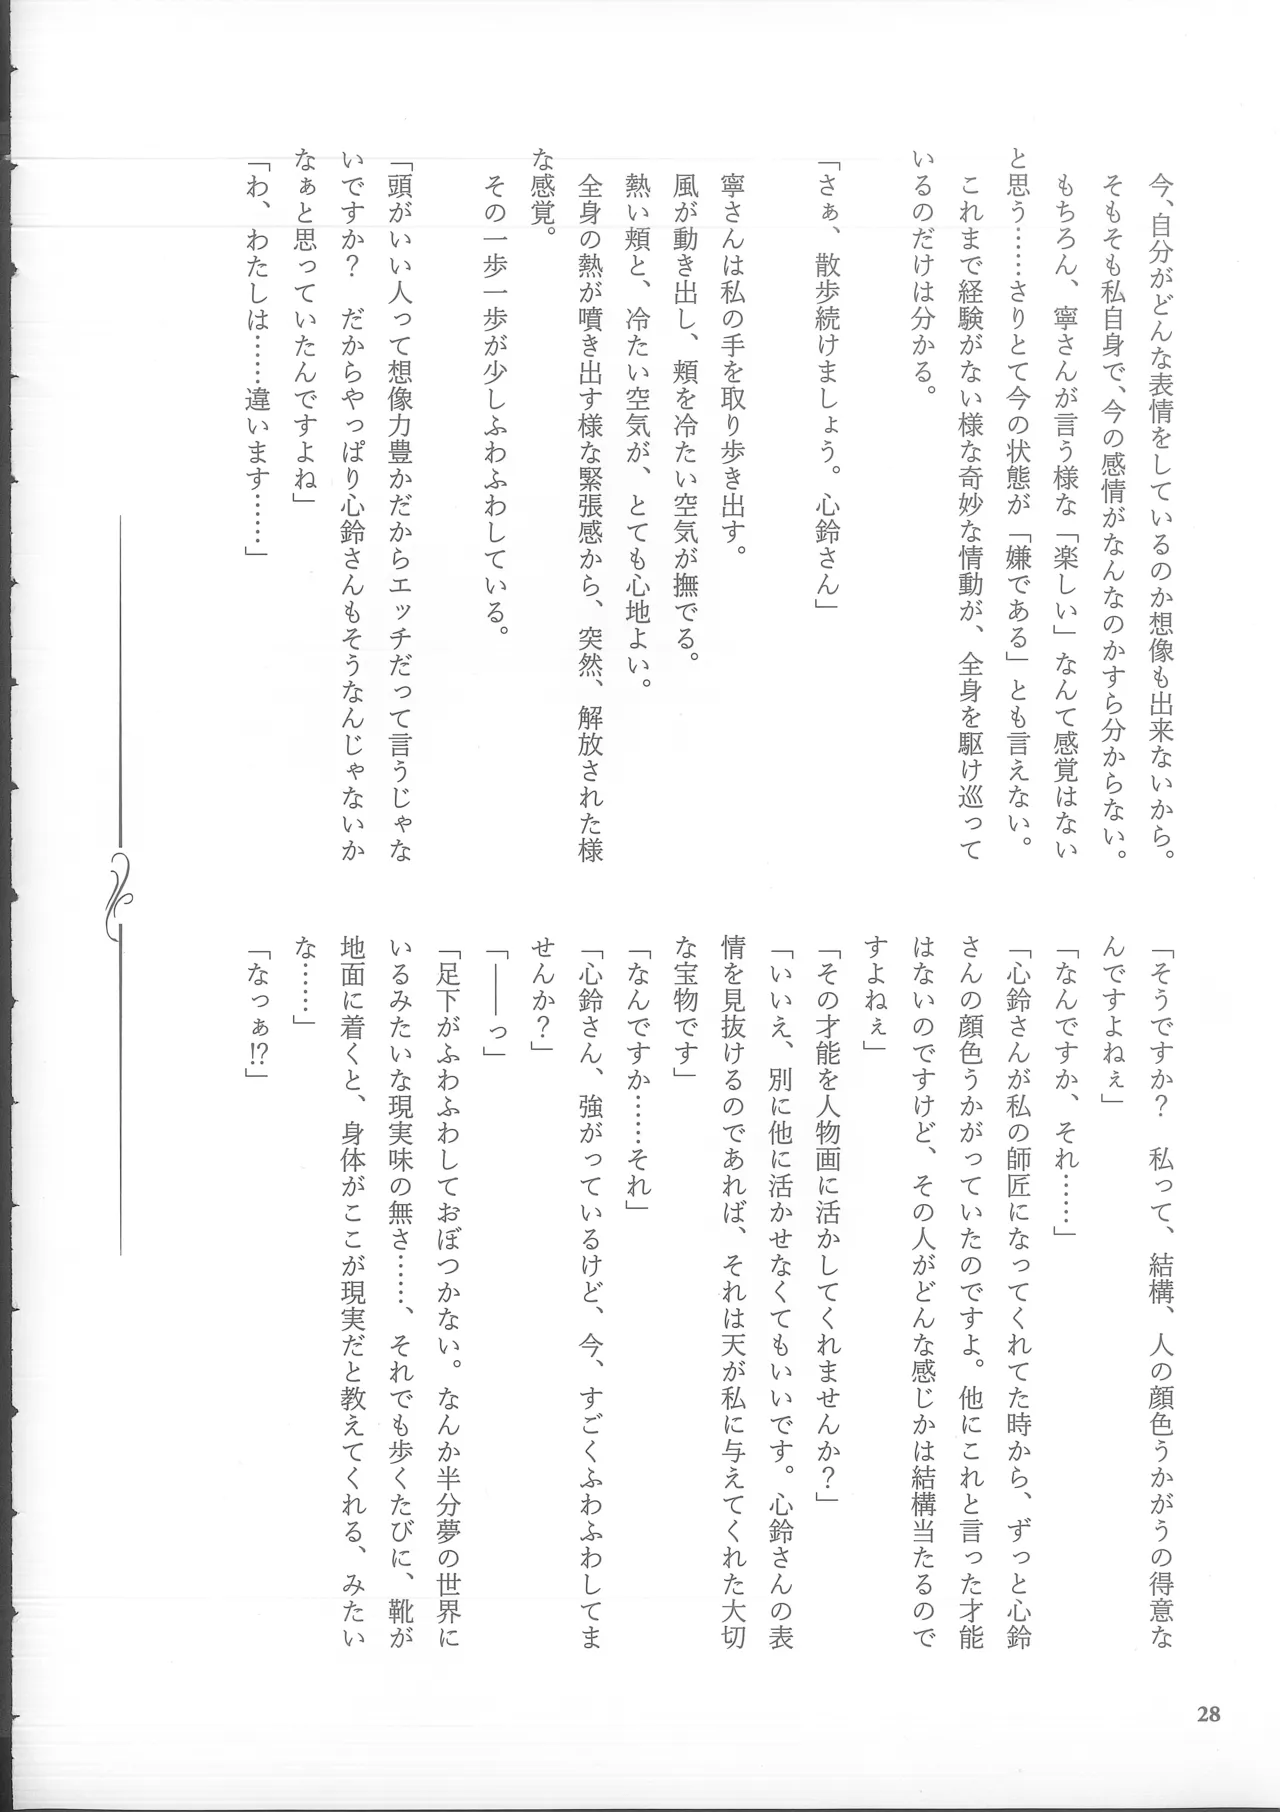 今、自分がどんな表情をしているのか想像も出来ないから。
そもそも私自身で、今の感情がなんなのかすら分からない。
もちろん、寧さんが言う様な「楽しい」なんて感覚はない
と思う……さりとて今の状態が「嫌である」とも言えない。
これまで経験がない様な奇妙な情動が、全身を駆け巡って
いるのだけは分かる。
「さぁ、散歩続けましょう。心鈴さん」
寧さんは私の手を取り歩き出す。
風が動き出し、頬を冷たい空気が撫でる。
熱い頬と、冷たい空気が、とても心地よい。
全身の熱が噴き出す様な緊張感から、突然、解放された様
な感覚。
その一歩一歩が少しふわふわしている。
「頭がいい人って想像力豊かだからエッチだって言うじゃな
いですか？　だからやっぱり心鈴さんもそうなんじゃないか
なぁと思っていたんですよね」
「わ、わたしは……違います……」
「そうですか？　私って、結構、人の顔色うかがうの得意な
んですよねぇ」
「なんですか、それ……」
「心鈴さんが私の師匠になってくれてた時から、ずっと心鈴
さんの顔色うかがっていたのですよ。他にこれと言った才能
はないのですけど、その人がどんな感じかは結構当たるので
すよねぇ」
「その才能を人物画に活かしてくれませんか？」
「いいえ、別に他に活かせなくてもいいです。心鈴さんの表
情を見抜けるのであれば、それは天が私に与えてくれた大切
な宝物です」
「なんですか……それ」
「心鈴さん、強がっているけど、今、すごくふわふわしてま
せんか？」
「――っ」
「足下がふわふわしておぼつかない。なんか半分夢の世界に
いるみたいな現実味の無さ……、それでも歩くたびに、靴が
地面に着くと、身体がここが現実だと教えてくれる、みたい
な……」
「なっぁ⁉」
28